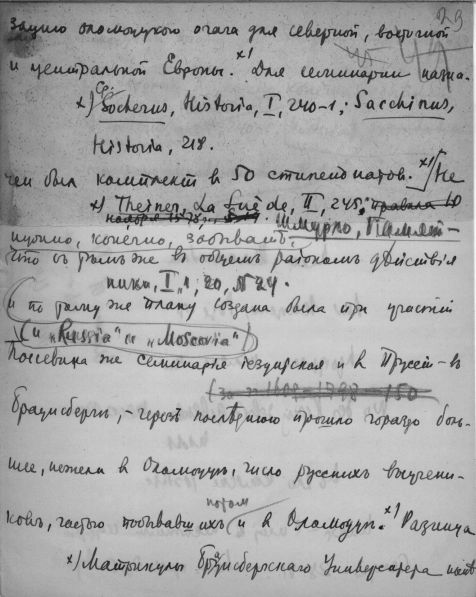 29
зацию оломоуцкого очага для северной, восточной
и центральной Европы.х) Для семинарии назна-
х) Ср. Socherus, Historia, I, 240-1; Sacchinus,
Historia, 218.
чен был комплект в 50 стипендиатов.х) Не
х) Theiner, La Suède, II, 245; правила 10
ноября 1578 г. Шмурло, Памят-
нужно, конечно, забывать,
что съ тѣмъ же в общем районом действія
ники, I, 1, 20, № 24.
и по тому же плану создана была при участіи
(и „Russia“ и „Moscovia“)
Поссевина же семинарія іезуитская и в Пруссіи - в
Браунсберге, - через послѣднюю прошло гораздо боль-
шее, нежели в Оломоуцъ, число русских выучени-
ковъ, часто побывавших потом и в Оломоуц.х) Разница
х) Матрикулы Браунсбергскаго Университета